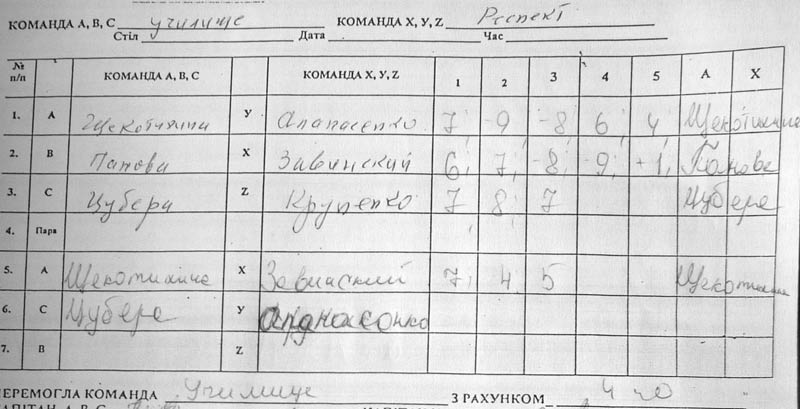 КОМАНДА А, В, С училище КОМАНДА X, У, Z Респект
Стіл Дата Час
№ п/п КОМАНДА А, В, С КОМАНДА X, У, Z 1 2 3 4 5 А X
1. А Щекотихина У Апанасенко 7, -9, -8, 6, 4, Щекотихина
2. В Панова X Завинский 6, 7, -8, -9, +1, Панова
3. С Цубера Z Крупенко 7 8 7 Цубера
4. Пара
5. А Щекотихина X Завинский 7, 4 5 Щекотихина
6. С Цубера У Апанасенко
7. В Z
ПЕРЕМОГЛА КОМАНДА Училище З РАХУНКОМ 4-0